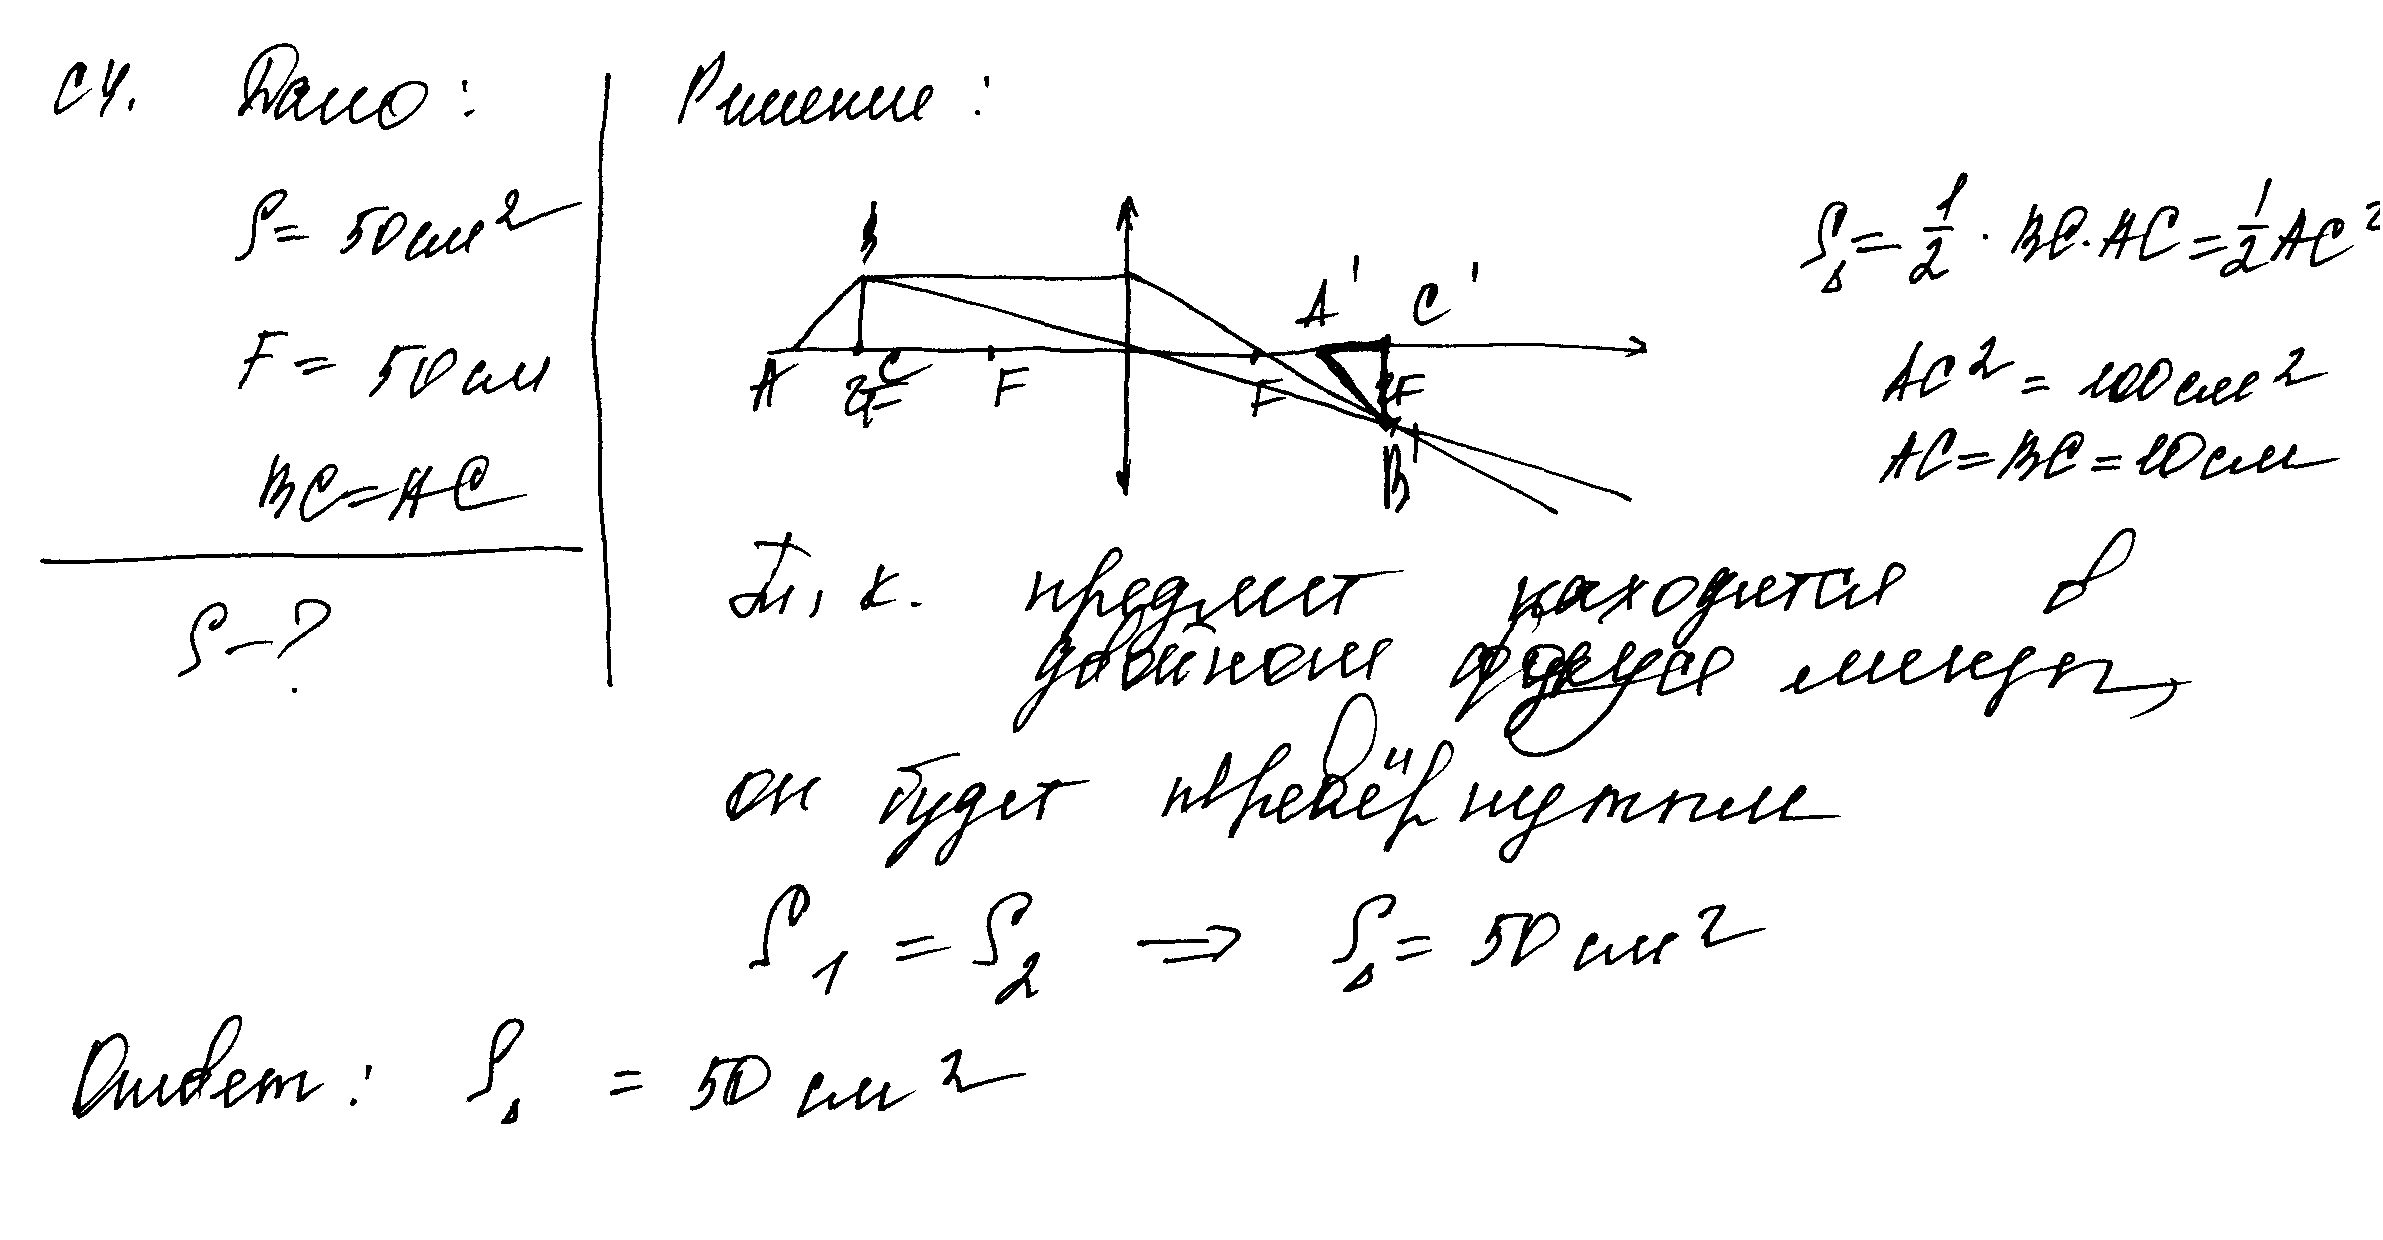 С4. Дано: Решение:
S = 50 см²
F = 50 см
BC = AC
S - ?
B
A 2F C F F 2F
A' C'
B'
S△ = 1/2 · BC · AC = 1/2 AC²
AC² = 100 см²
AC = BC = 10 см
Т. к. предмет находится в
двойном фокусе линзы,
он будет перевёрнутым
S₁ = S₂ ⇒ S△ = 50 см²
Ответ: S△ = 50 см²